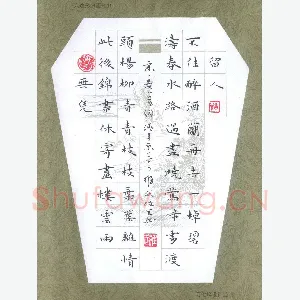 留人
不住醉解蘭舟去一棹碧
濤春水路過盡曉鶯啼處渡
頭楊柳青青枝枝葉葉離情
此後錦書休寄畫樓雲雨
無憑
Shufawang.CN